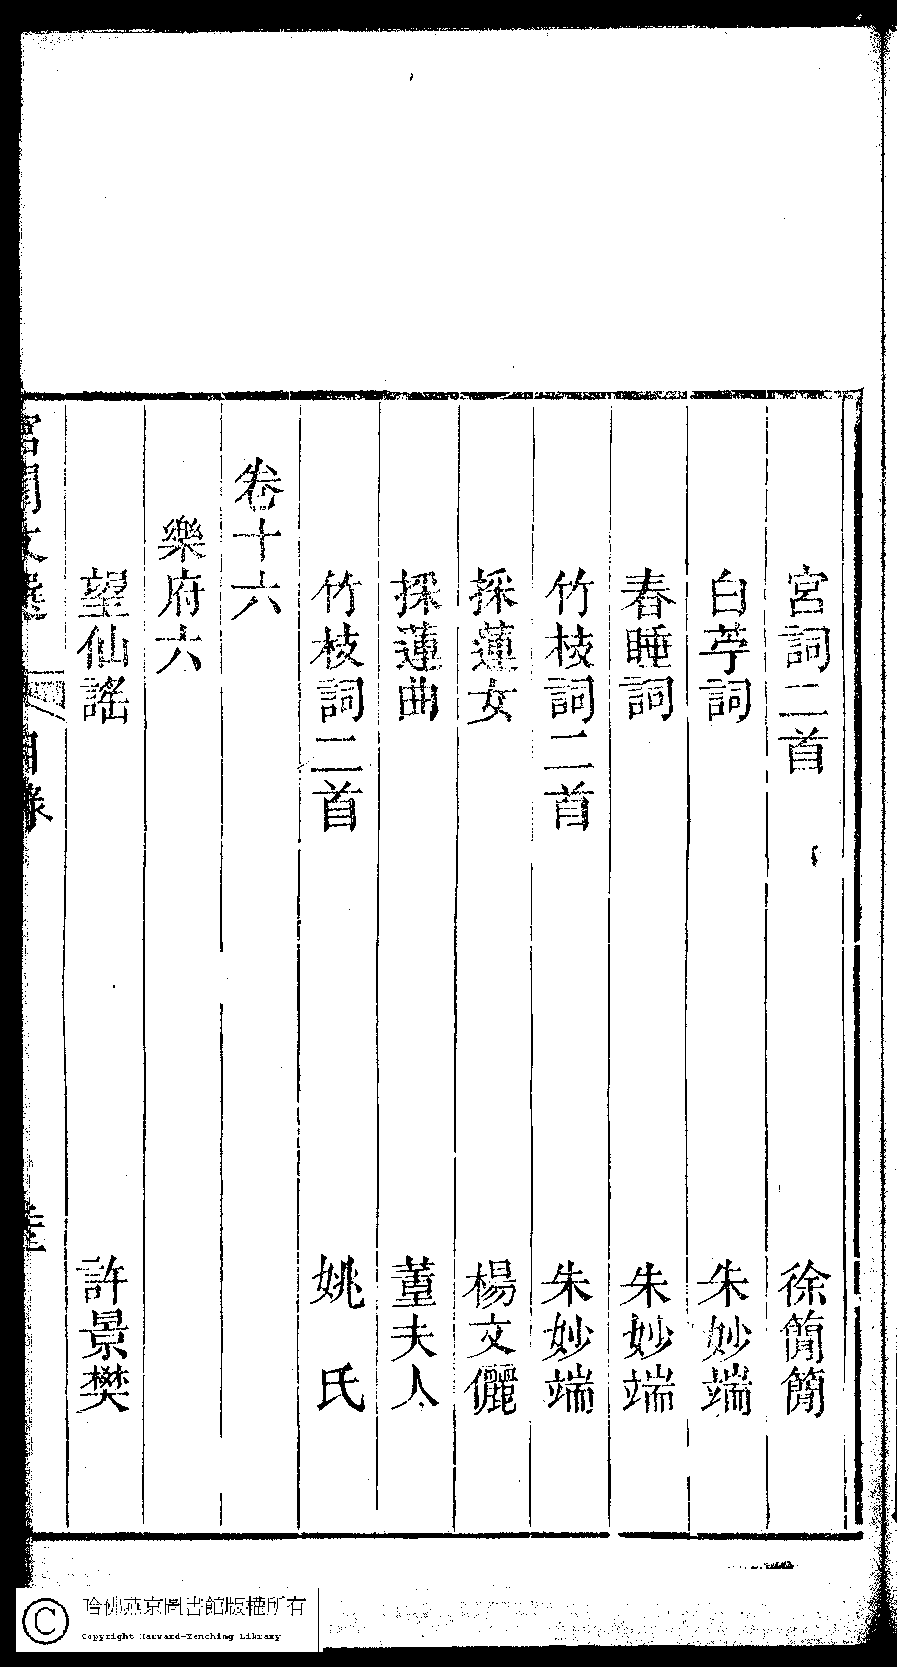 宮詞二首 徐簡簡
白苧詞 朱妙端
春睡詞 朱妙端
竹枝詞二首 朱妙端
採蓮女 楊文儷
採蓮曲 董夫人
竹枝詞二首 姚氏
卷十六
樂府六
望仙謠 許景樊
宮閨文選 目錄
哈佛燕京圖書館版權所有
Copyright Harvard-Yenching Library